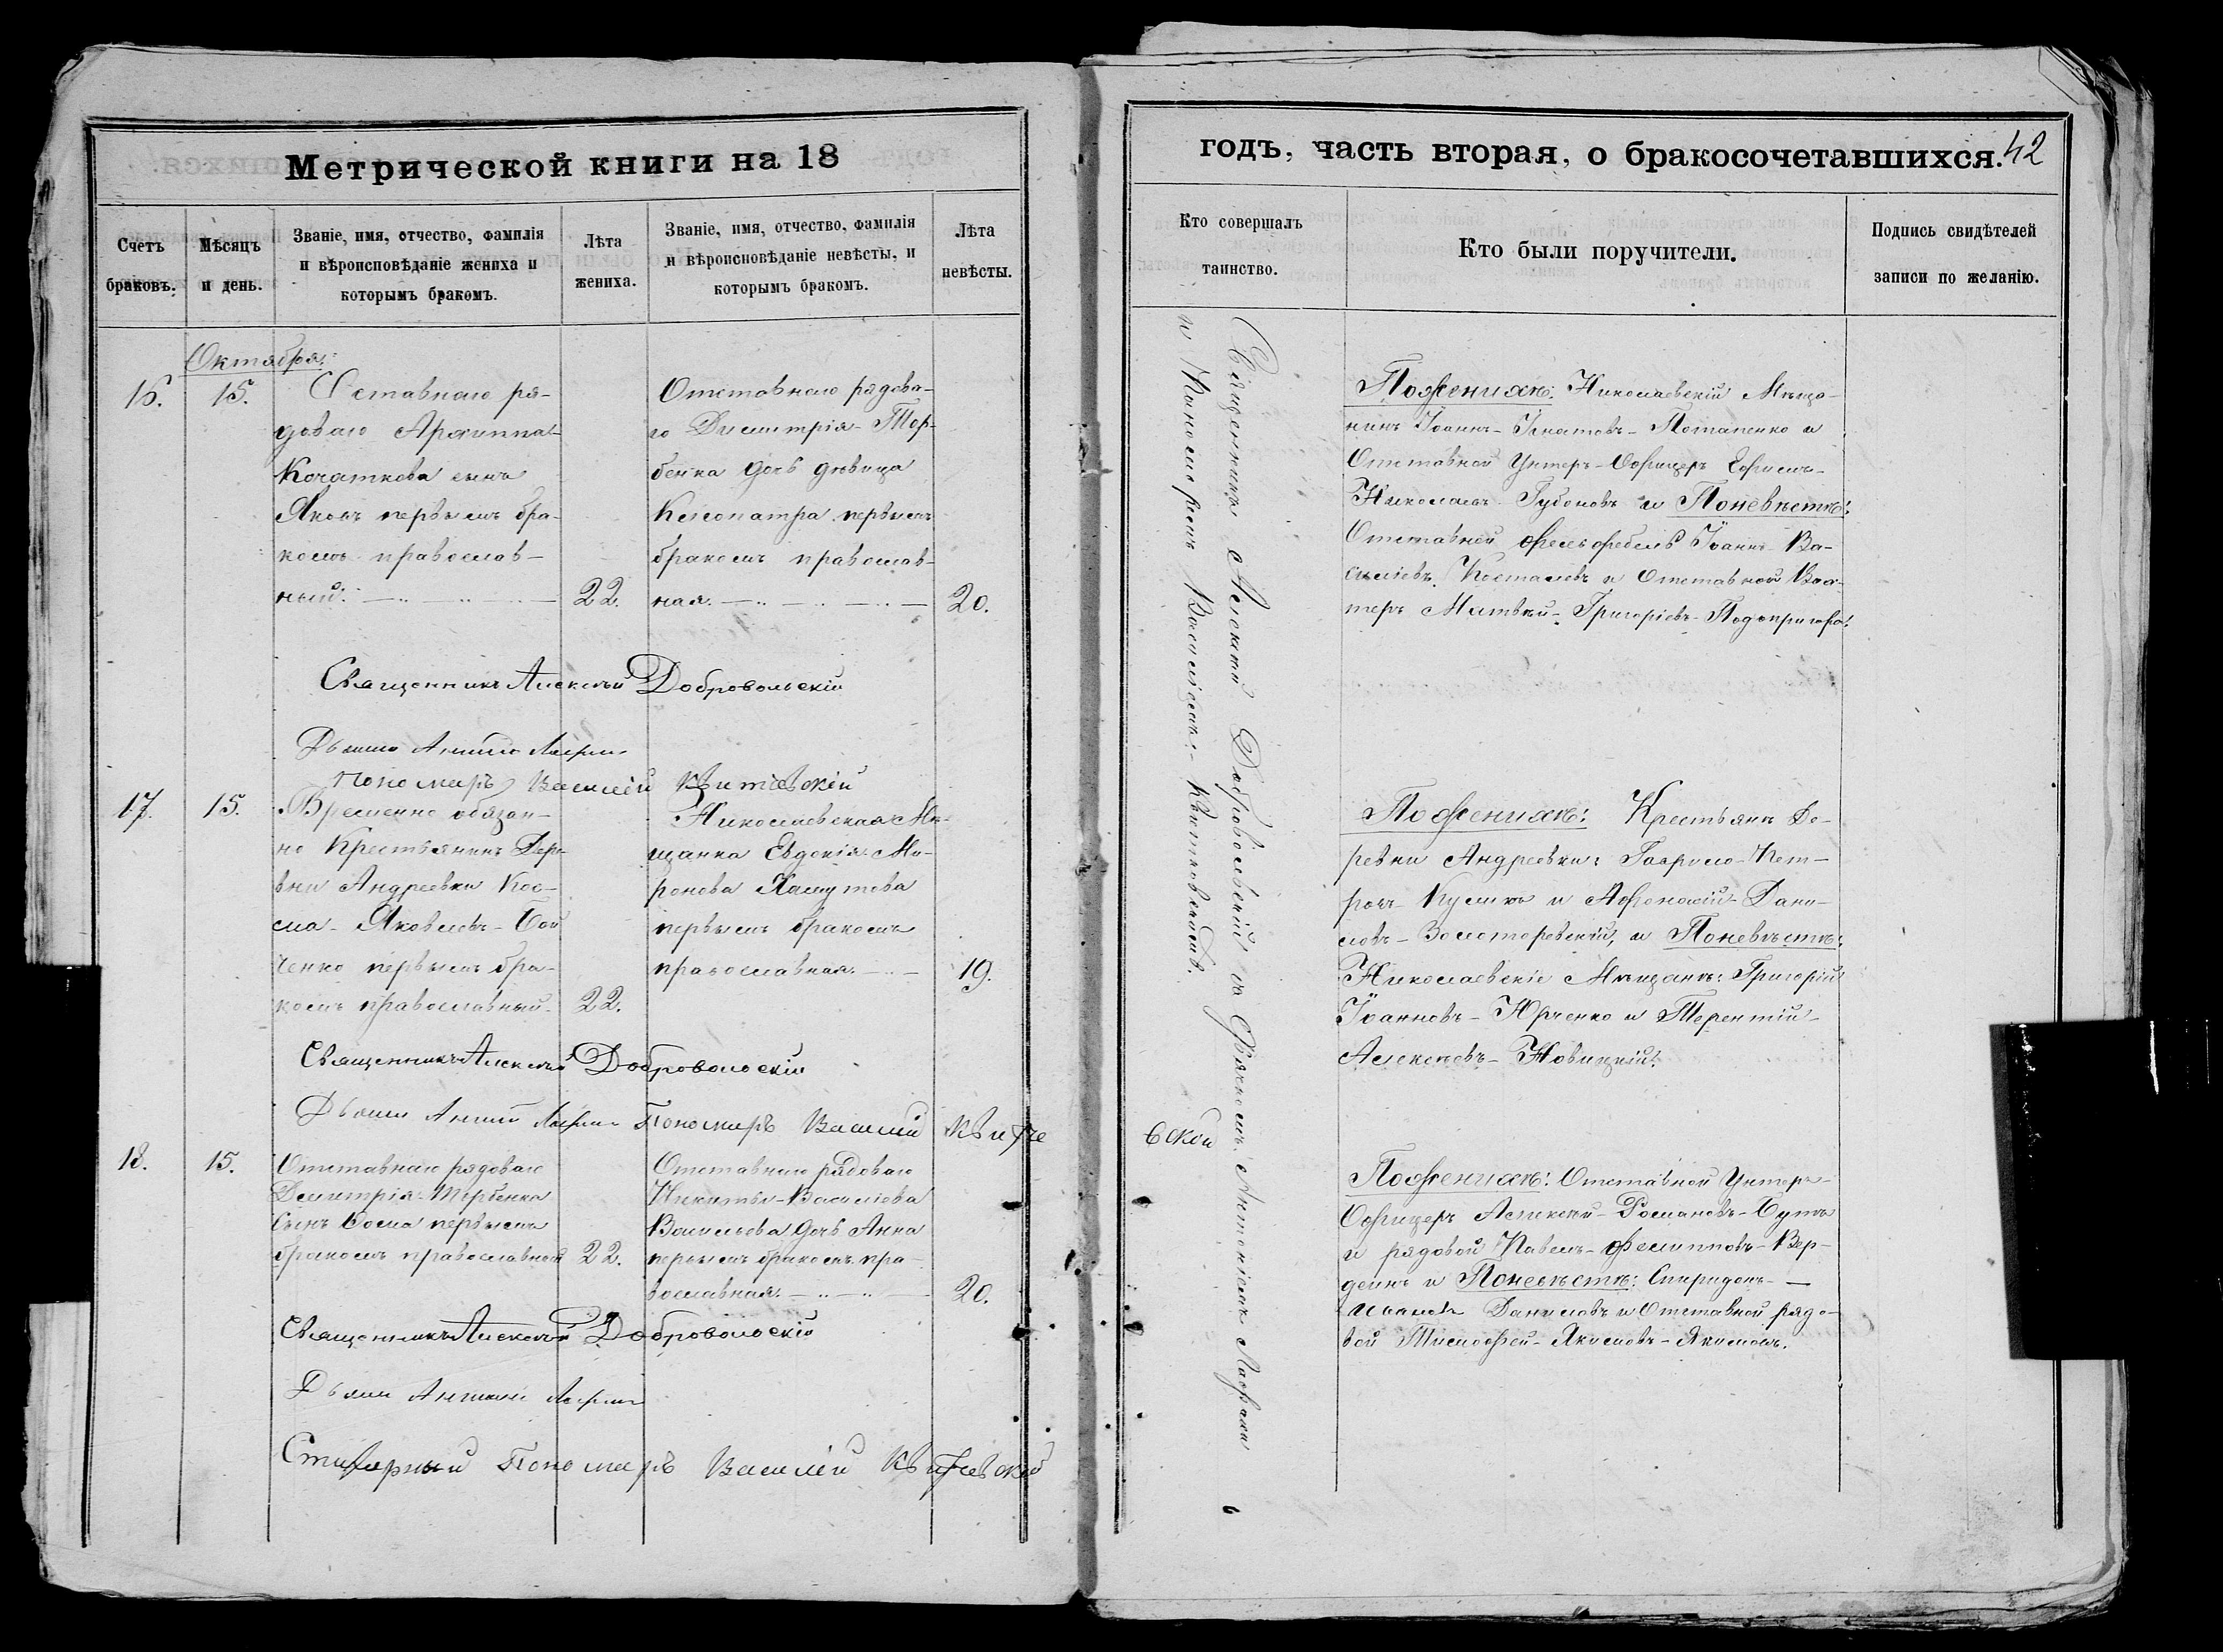 Метрической книги на 18
Счетъ
браковъ.
Мѣсяцъ
и день.
Званіе, имя, отчество, фамилія
и вѣроисповѣданіе жениха и
которымъ бракомъ.
Лѣта
жениха.
Званіе, имя, отчество, фамилія
и вѣроисповѣданіе невѣсты, и
которымъ бракомъ.
Лѣта
невѣсты.
Октября:
16.
15.
Отставнаго ря-
доваго Архиппа
Кочаткова сынъ
Яковъ первымъ бра-
комъ православ-
ный.
22.
Отставнаго рядова-
го Димитрія Тер-
бенка дочь дѣвица
Клеопатра первымъ
бракомъ православ-
ная.
20.
Священникъ Алексѣй Добровольскій
Пономарь Василій Квитевскій
17.
15.
Временно обязан-
но Крестьянинъ Дере-
вни Андреевки Кос-
ма Яковлевъ Бой
ченко первымъ бра-
комъ православный
22.
Николаевская Мѣ-
щанка Евдокія Ми-
ронова Хамутова
первымъ бракомъ
православная.
19.
Священникъ Алексѣй Добровольскій
Пономарь Василій Квитев
ской
18.
15.
Отставнаго рядоваго
Димитрія Тербенка
Сынъ Косма первымъ
бракомъ православной
22.
Отставнаго рядоваго
Никиты Василіева
Васильева дочь Анна
первымъ бракомъ пра-
вославная.
20.
Священникъ Алексѣй Добровольскій
Стихарный Пономарь Василій Квитевской
годъ, часть вторая, о бракосочетавшихся.
42
Кто совершалъ
таинство.
Кто были поручители.
Подпись свидѣтелей
записи по желанію.
Священникъ Алексій Добровольскій съ Дьячкомъ Антоніемъ
и Пономаремъ Василіемъ Квитковскимъ.
По женихѣ: Николаевскій Мѣща-
нинъ Іоаннъ Игнатовъ Потапенко и
Отставной Унтеръ-Офицеръ Ефимъ
Николаевъ Губоновъ и По невѣстѣ:
Отставной фельдфебель Іоаннъ Ва-
силіевъ Косталевъ и Отставной Вах-
теръ Матвѣй Григоріевъ Подопригора.
По женихѣ: Крестьяне Де-
ревни Андреевки: Гаврило Пет-
ровъ Куликъ и Афонасій Дани-
ловъ Золоторевскій, и По невѣстѣ:
Николаевскіе Мѣщане: Григорій
Іоанновъ Юрченко и Терентій
Алексѣевъ Новицкій.
По женихѣ: Отставной Унтеръ-
Офицеръ Алексѣй Романовъ Бутъ
и рядовой Павелъ Филипповъ Вер-
деинъ и По невѣстѣ: Спиридонъ
Даниловъ и Отставной рядо-
вой Тимофей Якимовъ Якимовъ.